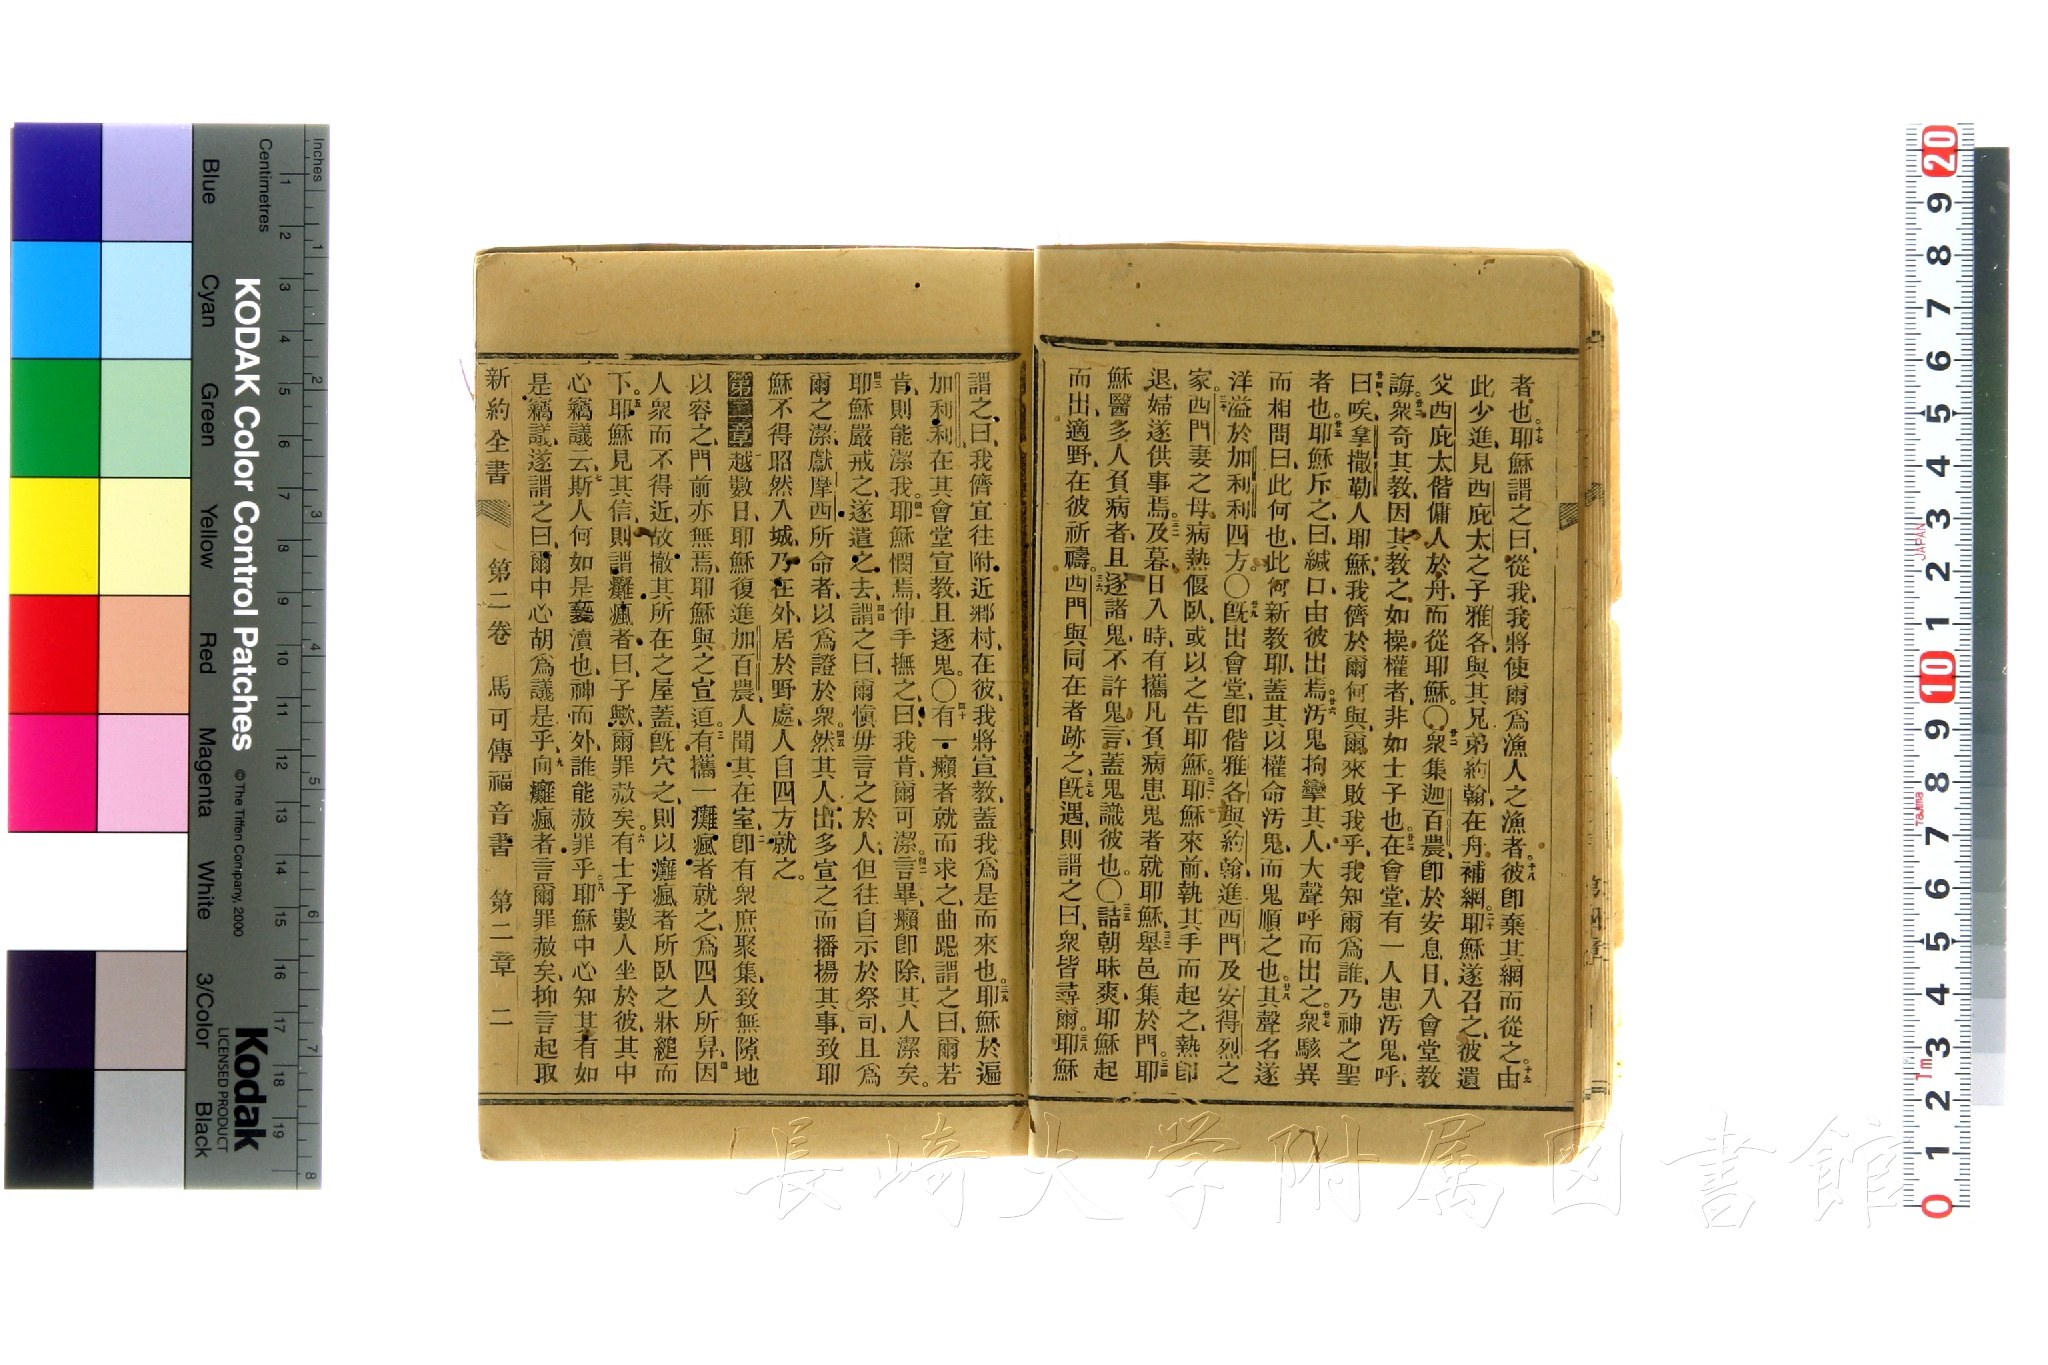 者也耶穌謂之曰從我我將使爾爲漁人之漁者彼卽棄其網而從之由
此少進見西庇太之子雅各與其兄弟約翰在舟補網耶穌遂召之彼遺
父西庇太偕傭人於舟而從耶穌〇衆集迦百農卽於安息日入會堂教
誨衆奇其教因其教之如操權者非如士子也在會堂有一人患汚鬼呼
曰唉拿撒勒人耶穌我儕於爾何與爾來敗我乎我知爾爲誰乃神之聖
者也耶穌斥之曰緘口由彼出焉汚鬼拘攣其人大聲呼而出之衆駭異
而相問曰此何也此何新教耶蓋其以權命汚鬼而鬼順之也其聲名遂
洋溢於加利利四方〇旣出會堂卽偕雅各與約翰進西門及安得烈之
家西門妻之母病熱偃臥或以之告耶穌耶穌來前執其手而起之熱卽
退婦遂供事焉及暮日入時有攜凡負病患鬼者就耶穌舉邑集於門耶
穌醫多人負病者且逐諸鬼不許鬼言蓋鬼識彼也〇詰朝昧爽耶穌起
而出適野在彼祈禱西門與同在者跡之旣遇則謂之曰衆皆尋爾耶穌
謂之曰我儕宜往附近鄉村在彼我將宣教蓋我爲是而來也耶穌於遍
加利利在其會堂宣教且逐鬼〇有一癩者就而求之曲跽謂之曰爾若
肯則能潔我耶穌憫焉伸手撫之曰我肯爾可潔言畢癩卽除其人潔矣
耶穌嚴戒之遂遣之去謂之曰爾愼毋言之於人但往自示於祭司且爲
爾之潔獻摩西所命者以爲證於衆然其人出多宣之而播揚其事致耶
穌不得昭然入城乃在外居於野處人自四方就之
第二章越數日耶穌復進加百農人聞其在室卽有衆庶聚集致無隙地
以容之門前亦無焉耶穌與之宣道有攜一癱瘋者就之爲四人所舁因
人衆而不得近故撤其所在之屋蓋旣穴之則以癱瘋者所臥之牀縋而
下耶穌見其信則謂癱瘋者曰子歟爾罪赦矣有士子數人坐於彼其中
心竊議云斯人何如是褻瀆也神而外誰能赦罪乎耶穌中心知其有如
是竊議遂謂之曰爾中心胡爲議是乎向癱瘋者言爾罪赦矣抑言起取
新約全書 第二卷 馬可傳福音書 第二章 二
KODAK Color Control Patches
© The Tiffen Company, 2000
Kodak
LICENSED PRODUCT
Inches
Centimetres
Blue Cyan Green Yellow Red Magenta White 3/Color Black
長崎大学附属図書館